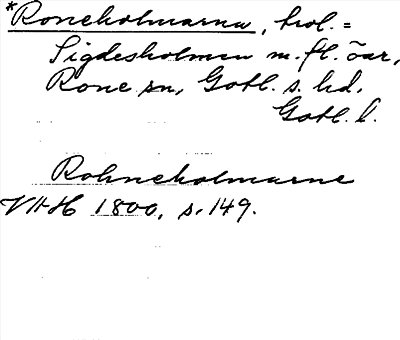 *Roneholmarna, trol. =
Sigdesholmen m. fl. öar,
Rone sn, Gotl. s. hd,
Gotl. l.
Rohneholmarne
VHH 1800, s. 149.